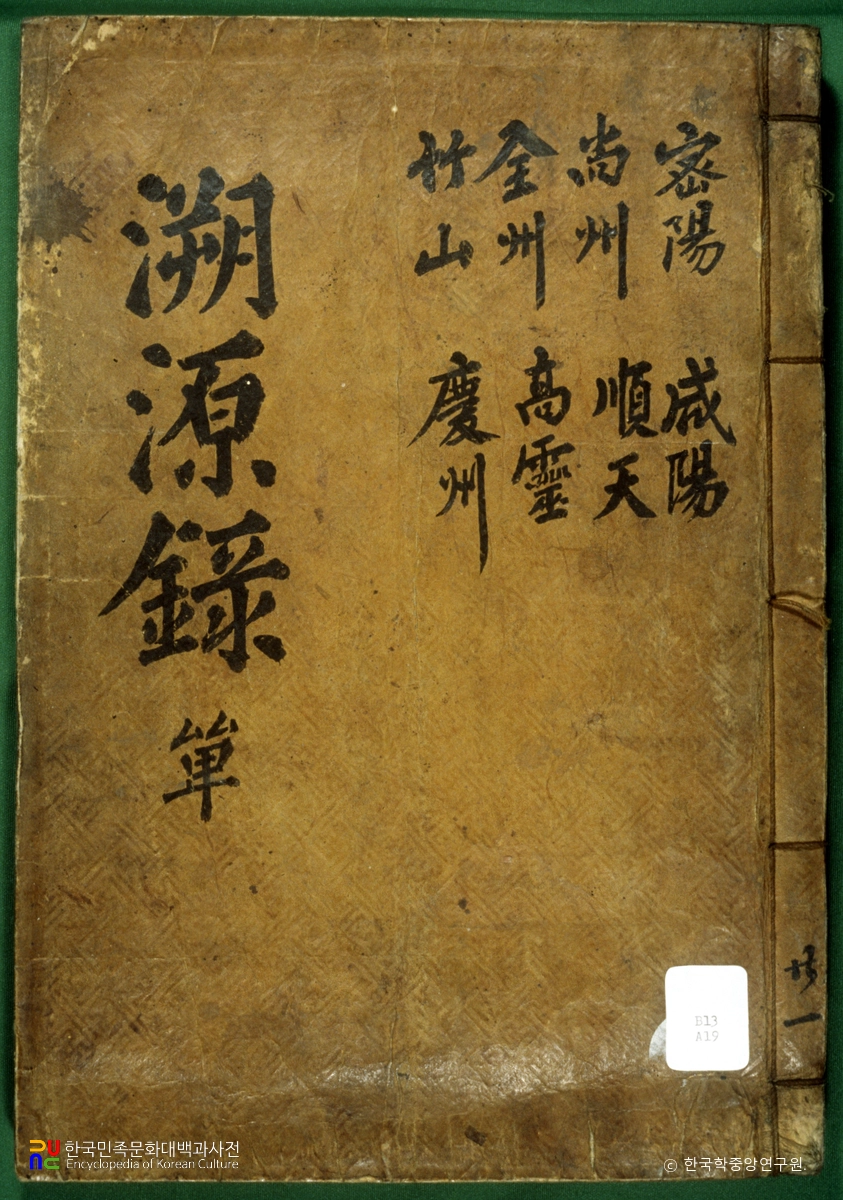 密陽 咸陽
尙州 順天
全州 高靈
竹山 慶州
溯源錄 單
一
B13
A19
한국민족문화대백과사전
Encyclopedia of Korean Culture
© 한국학중앙연구원